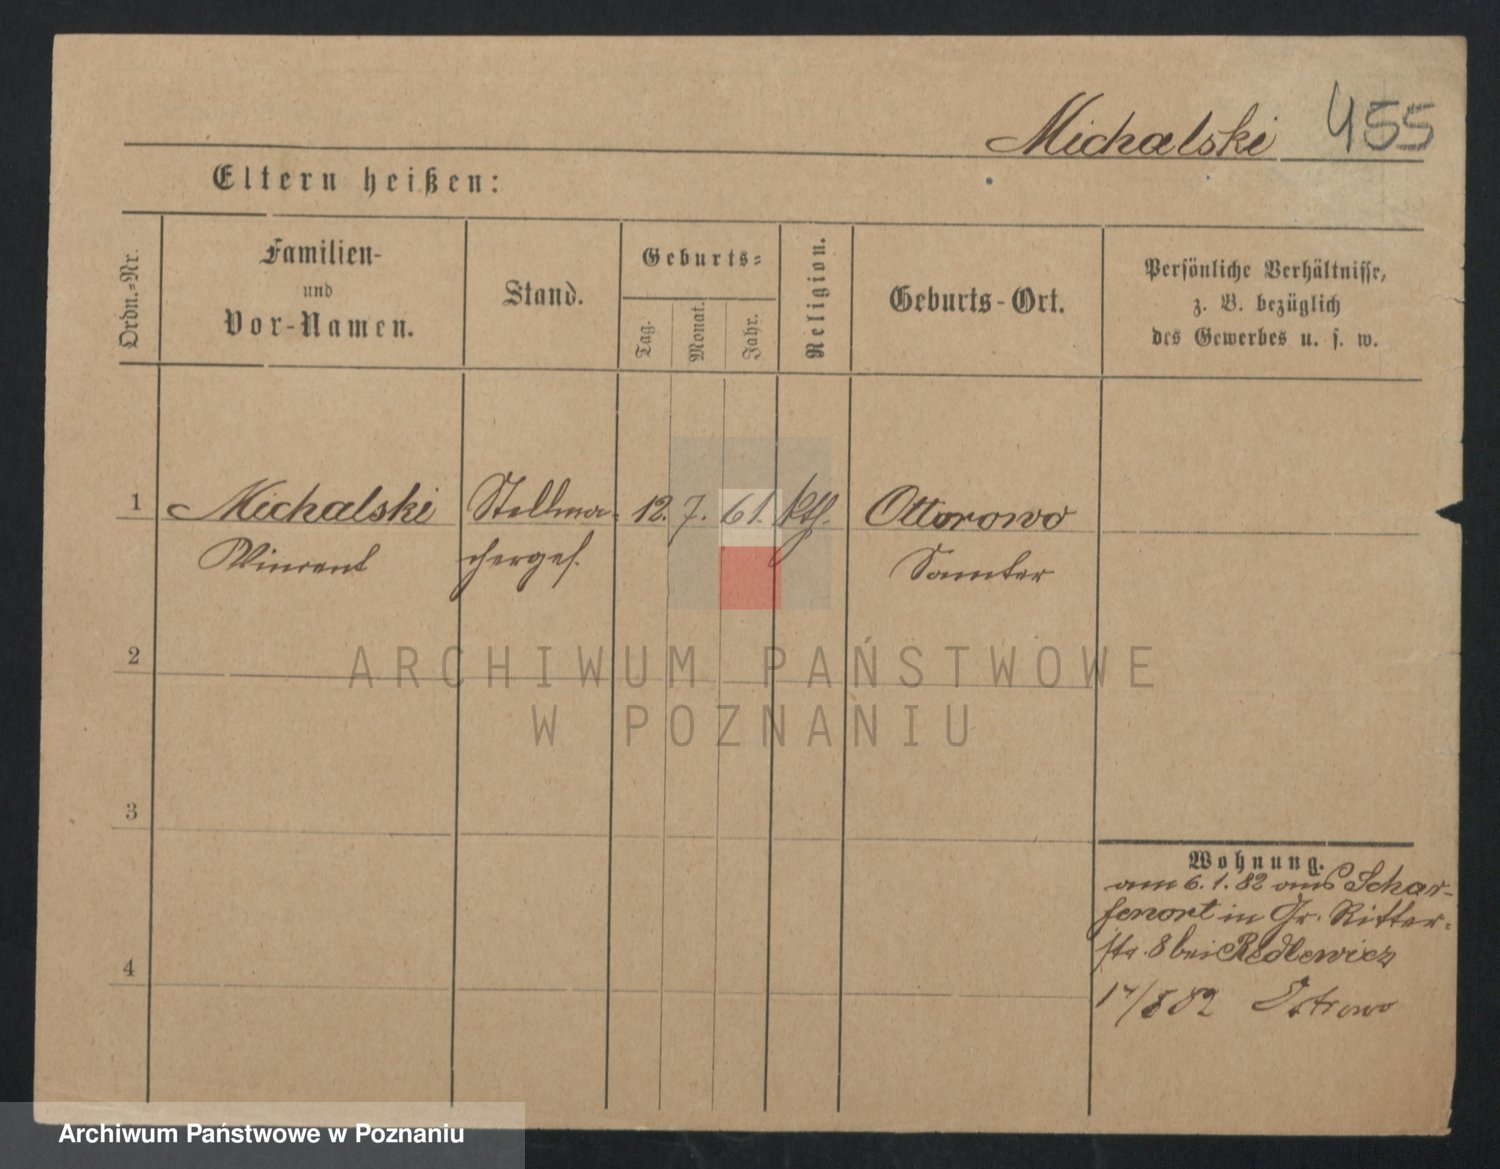 Michalski 455
Eltern heißen:
Ordn.-Nr.
Familien-
und
Vor-Namen.
Stand.
Geburts-
Tag.
Monat.
Jahr.
Religion.
Geburts-Ort.
Persönliche Verhältnisse,
z. B. bezüglich
des Gewerbes u. s. w.
1 Michalski Stellma- 12. 7. 61. kth. Ottorowo
Vincent chergef. Samter
2
ARCHIWUM PAŃSTWOWE
W POZNANIU
3
Wohnung.
am 6.1.82 aus Schar-
fenort in Gr. Ritter-
str. 8 bei Redlewicz
4
17/8 82 Ostrowo
Archiwum Państwowe w Poznaniu